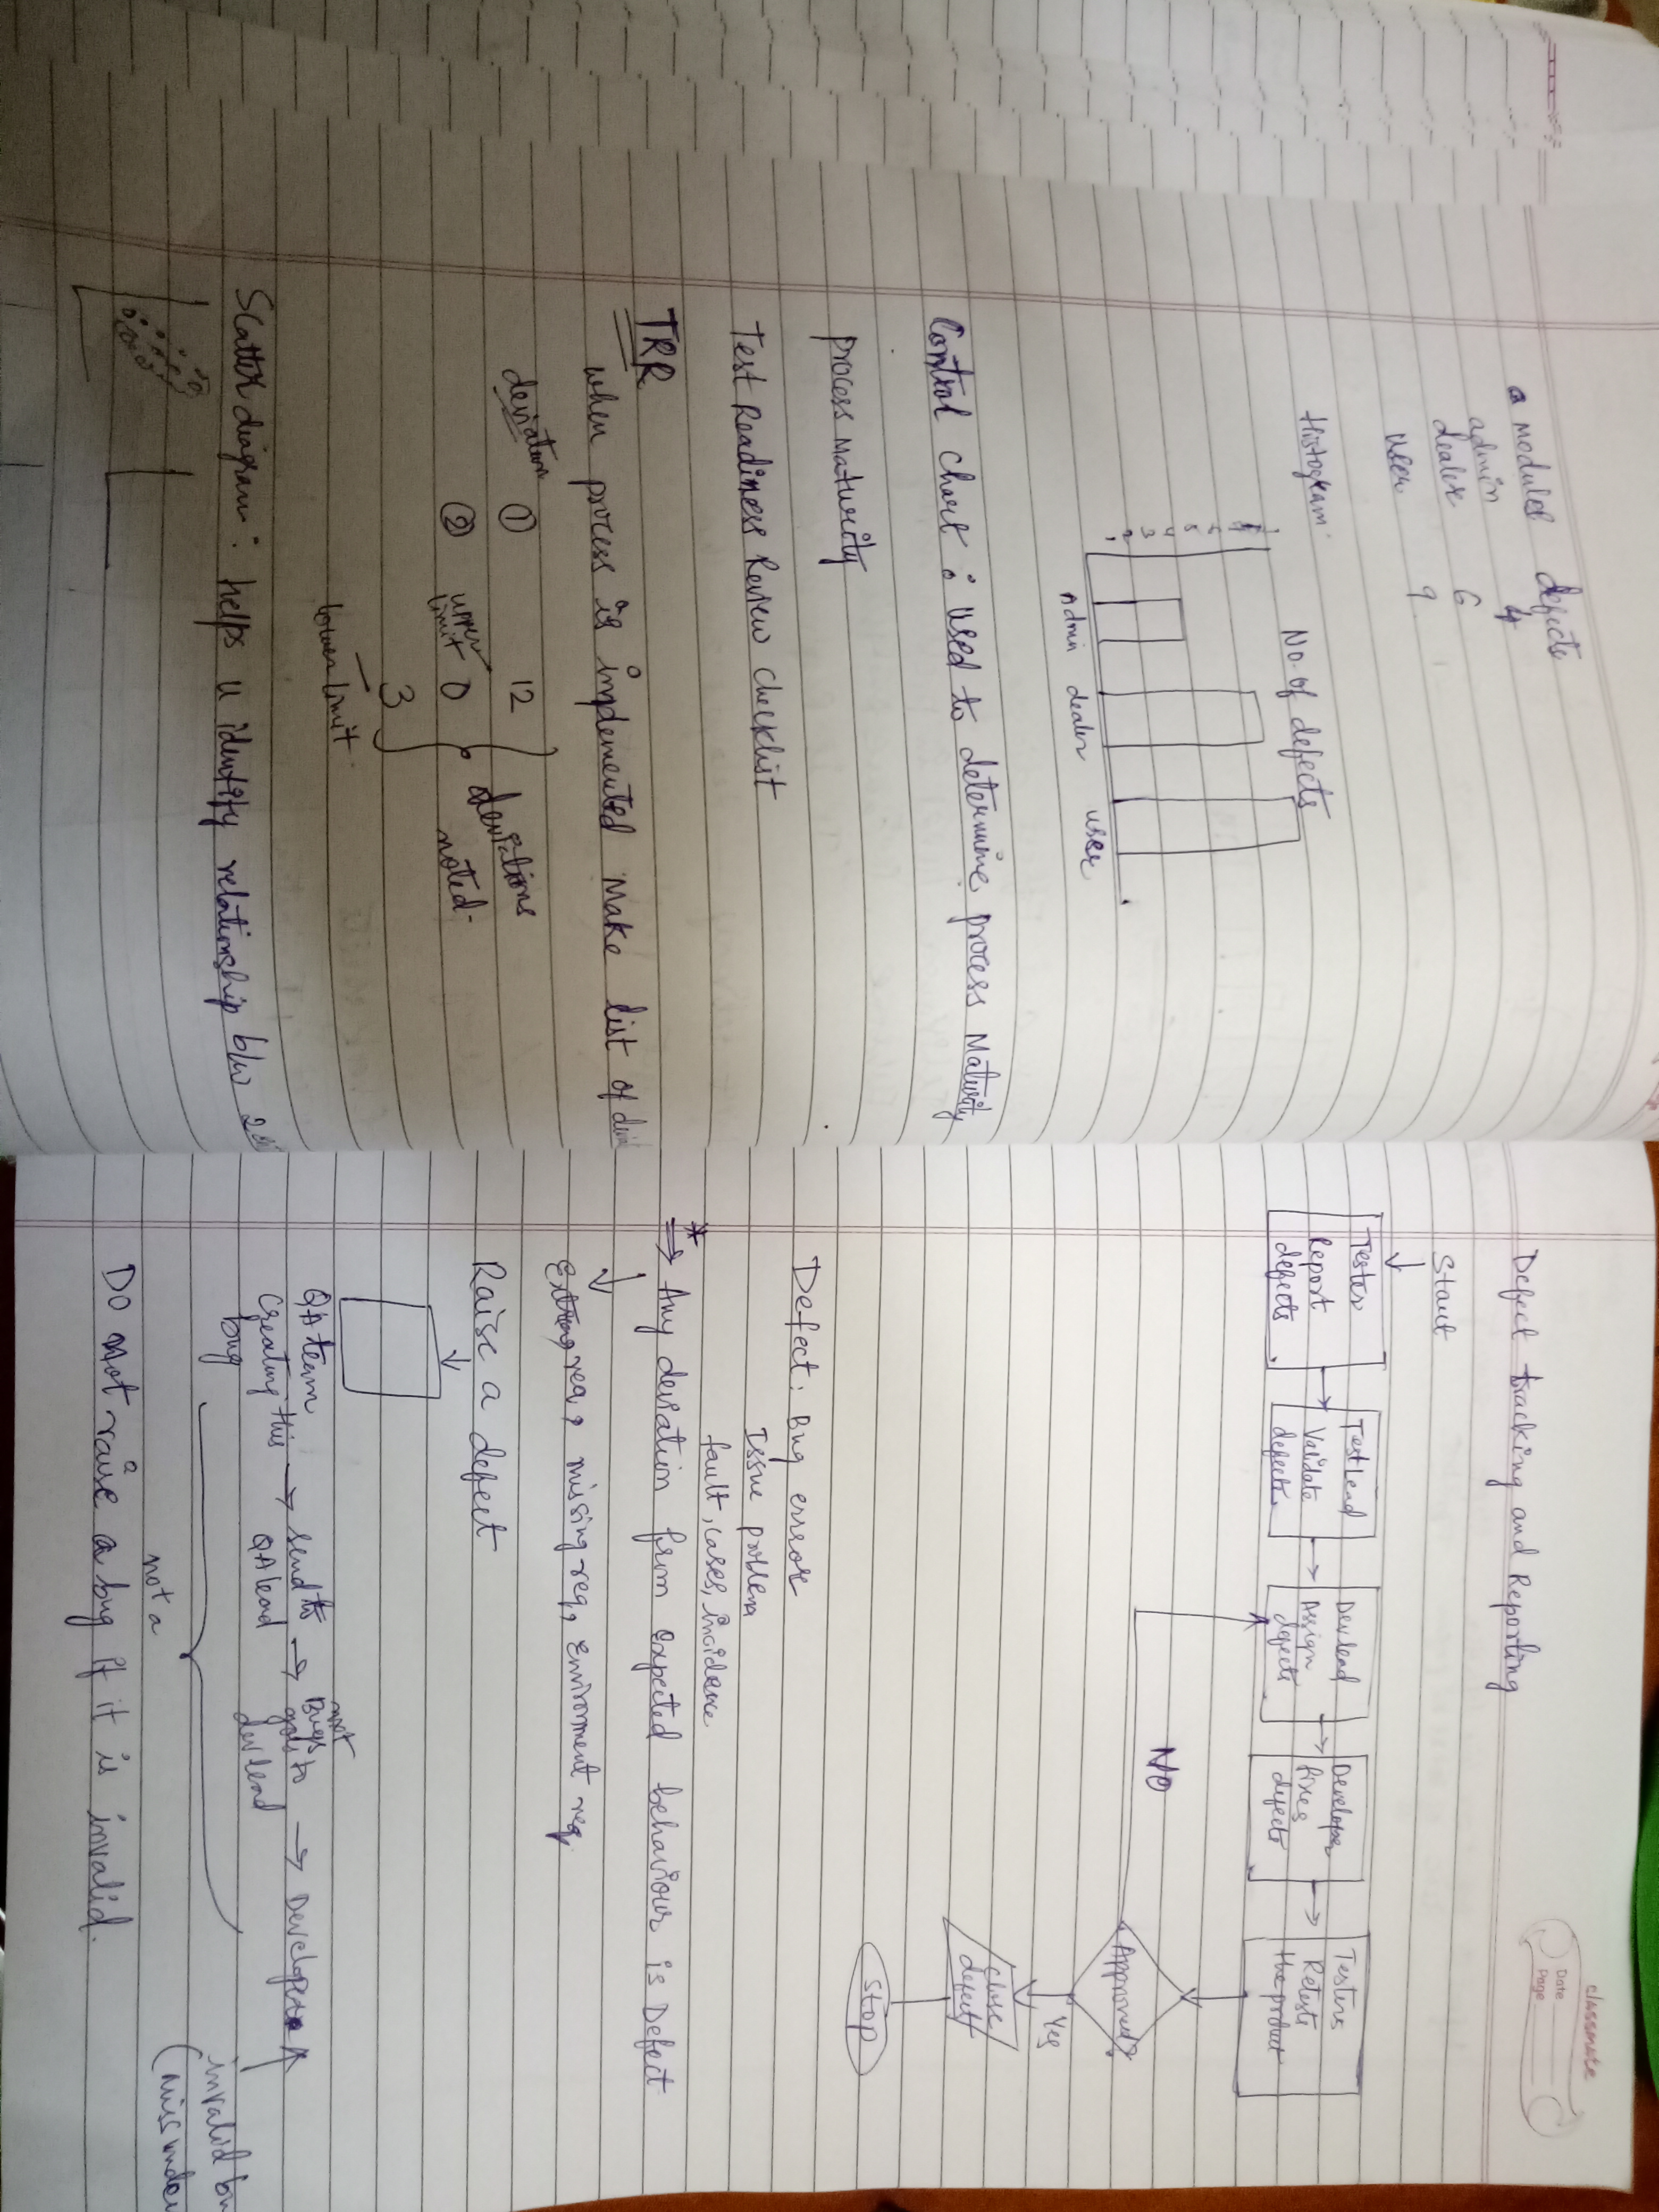 modules defects
admin 4
dealer 6
user 9
Histogram
No. of defects
7
6
5
4
3
2
1
Admin dealer user
Control chart : used to determine process Maturity
process Maturity
Test Readiness Review checklist
TRR
when process is implemented Make list of
deviation ① 12
② upper limit 0
3
lower limit
deviations noted-
Scatter diagram : helps u identify relationship b/w 2
classmate
Date
Page
Defect tracking and Reporting
Start
Tester Report defects
Test lead Validate defects.
Dev lead Assign defects
Developer fixes defects
Testers Retests the product
NO
Approved?
Yes
close defect
Stop
Defect : Bug error
Issue problem
fault, cases, incidence
* ⇒ Any deviation from expected behaviour is Defect
Extra req, missing req, environment req,
Raise a defect
QA team creating this bug → send to QA lead → Bugs goes to dev lead → Developer
not
invalid
not a
Do not raise a bug if it is invalid.